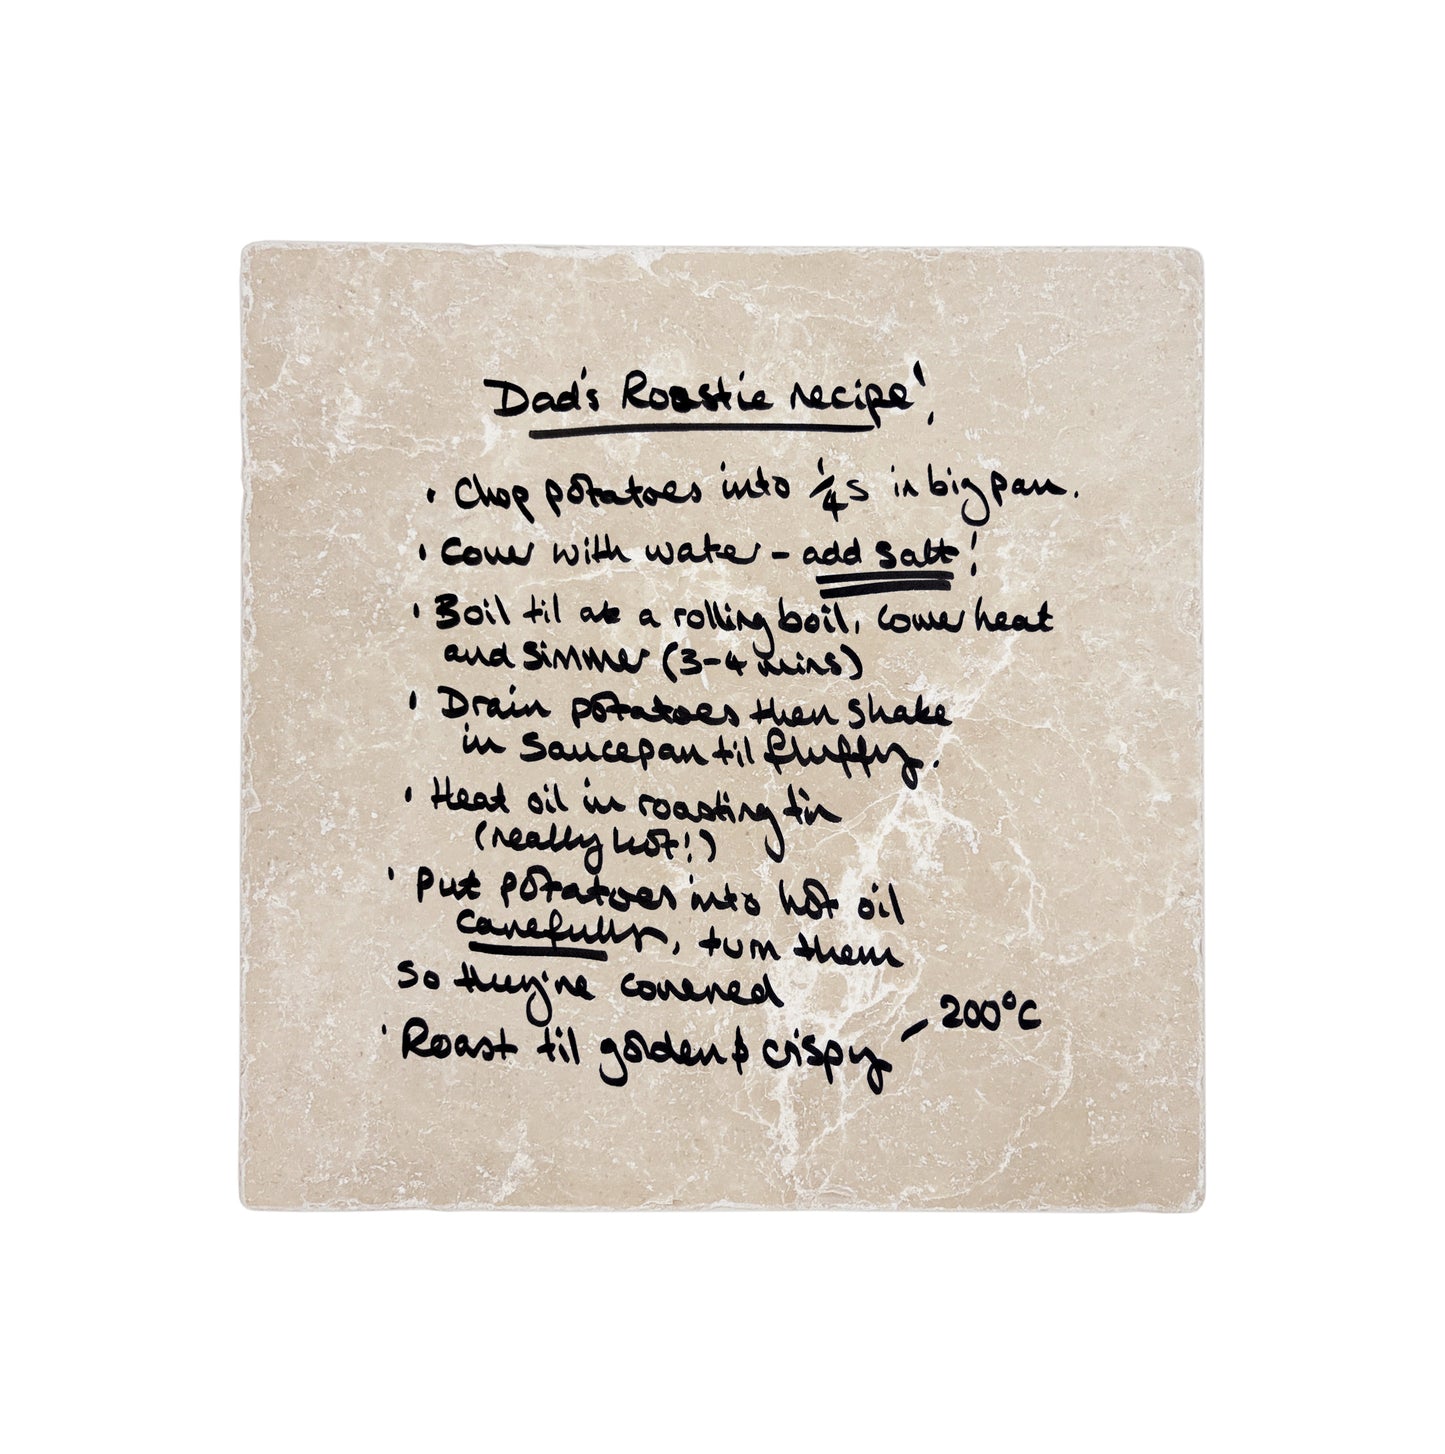 Dad's Roastie recipe!
• Chop potatoes into 1/4s in big pan.
• Cover with water - add salt!
• Boil til at a rolling boil, lower heat
and simmer (3-4 mins)
• Drain potatoes then shake
in saucepan til fluffy.
• Heat oil in roasting tin
(really hot!)
• Put potatoes into hot oil
carefully, turn them
so they're covered
• Roast til golden & crispy - 200°C